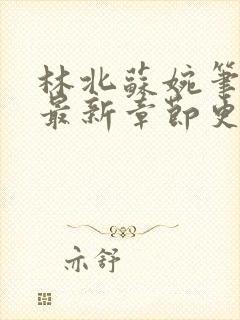 林北蘇婉筆
最新章節史
亦舒